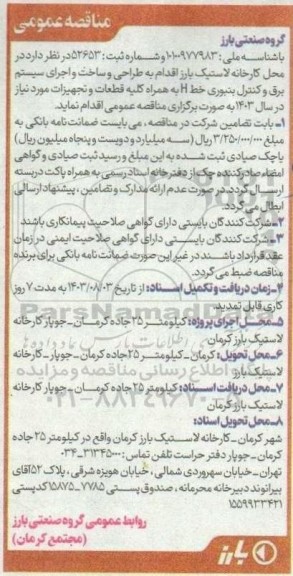 مناقصه عمومی
گروه صنعتی بارز
باشناسه ملی : ۱۰۱۰۰۹۷۷۹۸۳ و شماره ثبت : ۵۲۶۵۳ در نظر دارد در
محل کارخانه لاستیک بارز اقدام به طراحی و ساخت و اجرای سیستم
برق و کنترل بنبوری خط H به همراه کلیه قطعات و تجهیزات مورد نیاز
در سال ۱۴۰۳ به صورت برگزاری مناقصه عمومی اقدام نماید.
۱- بابت تضامین شرکت در مناقصه ، می بایست ضمانت نامه بانکی به
مبلغ ۳/۲۵۰/۰۰۰/۰۰۰ ریال (سه میلیارد و دویست و پنجاه میلیون ریال)
یا چک صیادی ثبت شده به این مبلغ و رسید ثبت صیادی و گواهی
امضاء صادرکننده چک از دفترخانه اسناد رسمی به همراه پاکت دربسته
ارسال گردد. در صورت عدم ارائه مدارک و تضامین ، پیشنهاد ارسالی
ابطال می گردد.
۲- شرکت کنندگان بایستی دارای گواهی صلاحیت پیمانکاری باشند.
۳- شرکت کنندگان بایستی دارای گواهی صلاحیت ایمنی در زمان
عقد قرارداد باشند در غیر این صورت ضمانت نامه بانکی برای برنده
مناقصه ضبط می گردد.
۴- زمان دریافت و تکمیل اسناد: از تاریخ ۱۴۰۳/۰۸/۰۳ به مدت ۷ روز
کاری قابل تمدید.
۵- محل اجرای پروژه: کیلومتر ۲۵ جاده کرمان - جوپار کارخانه
لاستیک بارز کرمان
۶- محل تحویل: کرمان - کیلومتر ۲۵ جاده کرمان - جوپار - کارخانه
لاستیک بارز
۷- محل دریافت اسناد: کیلومتر ۲۵ جاده کرمان - جوپار کارخانه
لاستیک بارز کرمان
۸- محل تحویل اسناد:
شهر کرمان - کارخانه لاستیک بارز کرمان واقع در کیلومتر ۲۵ جاده
کرمان - جوپار دفتر حراست تلفن تماس : ۳۱۳۴۵۰۰۰-۰۳۴
تهران - خیابان سهروردی شمالی ، خیابان هویزه شرقی ، پلاک ۵۲ آقای
پیراتوند دبیرخانه محرمانه ، صندوق پستی ۷۷۸۵-۱۵۸۷۵ کدپستی
۱۵۵۹۹۳۳۴۲۱
روابط عمومی گروه صنعتی بارز
(مجتمع کرمان)
بارز